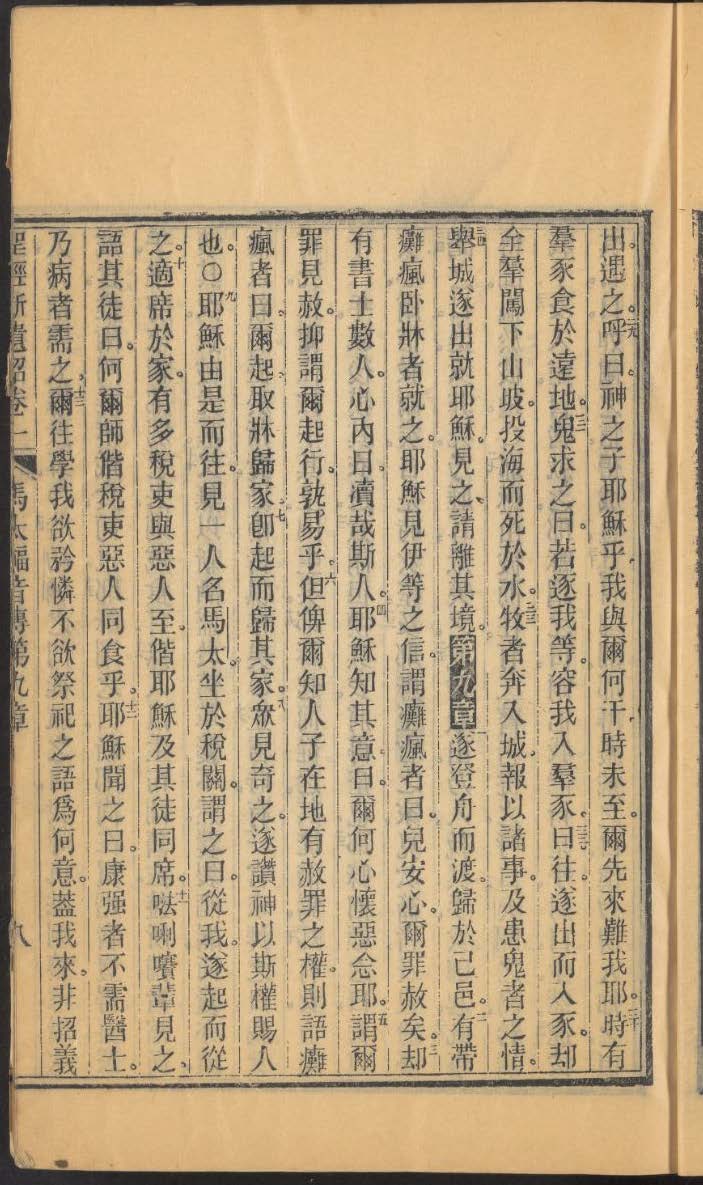 出遇之。二九呼曰。神之子耶穌乎。我與爾何干。時未至。爾先來難我耶。三十時有
羣豕食於遠地。三一鬼求之曰。若逐我等。容我入羣豕。三二曰往。遂出而入豕。却
全羣闖下山坡。投海而死於水。三三牧者奔入城。報以諸事。及患鬼者之情。
三四舉城遂出就耶穌。見之、請離其境。第九章一遂登舟而渡。歸於己邑。二有帶
癱瘋卧牀者就之。耶穌見伊等之信。謂癱瘋者曰。兒安心。爾罪赦矣。三却
有書士數人。心內曰。瀆哉斯人。四耶穌知其意。曰。爾何心懷惡念耶。五謂爾
罪見赦。抑謂爾起行。孰易乎。六但俾爾知人子在地有赦罪之權。則語癱
瘋者曰。爾起、取牀歸家。七卽起而歸其家。八衆見奇之。遂讚神以斯權賜人
也。○九耶穌由是而往。見一人名馬太。坐於稅關。謂之曰。從我。遂起而從
之。十適席於家。有多稅吏與惡人至。偕耶穌及其徒同席。十一㗙唎㘔輩見之、
語其徒曰。何爾師偕稅吏惡人同食乎。十二耶穌聞之曰。康强者不需醫士。
乃病者需之。十三爾往學我欲矜憐不欲祭祀之語爲何意。葢我來。非招義
聖經新遺詔卷一 馬太福音傳第九章 九